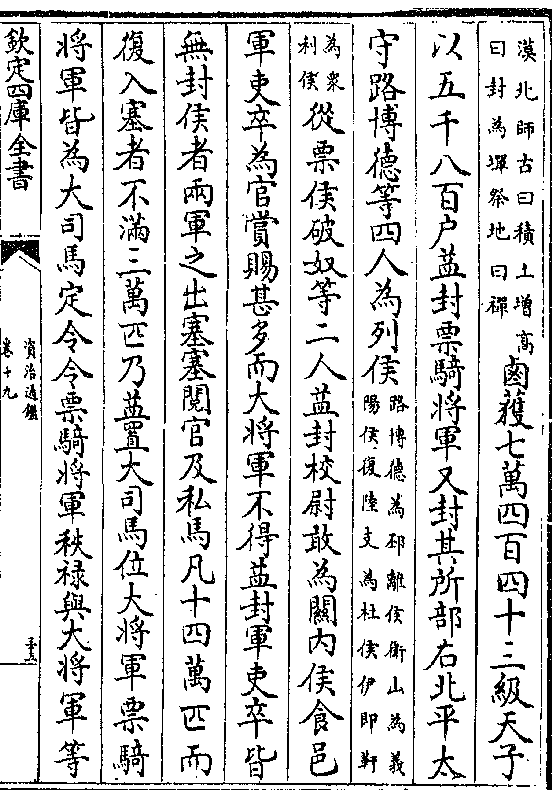 漠北師古曰積土增高
曰封為墠祭地曰禪
鹵獲七萬四百四十三級天子
以五千八百户益封票騎將軍又封其所部右北平太
守路博德等四人為列侯
路博德為邳離侯衛山為義
陽侯復陸支為杜侯伊即靬
為衆
利侯
從票侯破奴等二人益封校尉敢為關内侯食邑
軍吏卒為官賞賜甚多而大將軍不得益封軍吏卒皆
無封侯者兩軍之出塞塞閲官及私馬凡十四萬匹而
復入塞者不滿三萬匹乃益置大司馬位大將軍票騎
將軍皆為大司馬定令令票騎將軍秩禄與大將軍等
欽定四庫全書
資治通鑑
卷十九